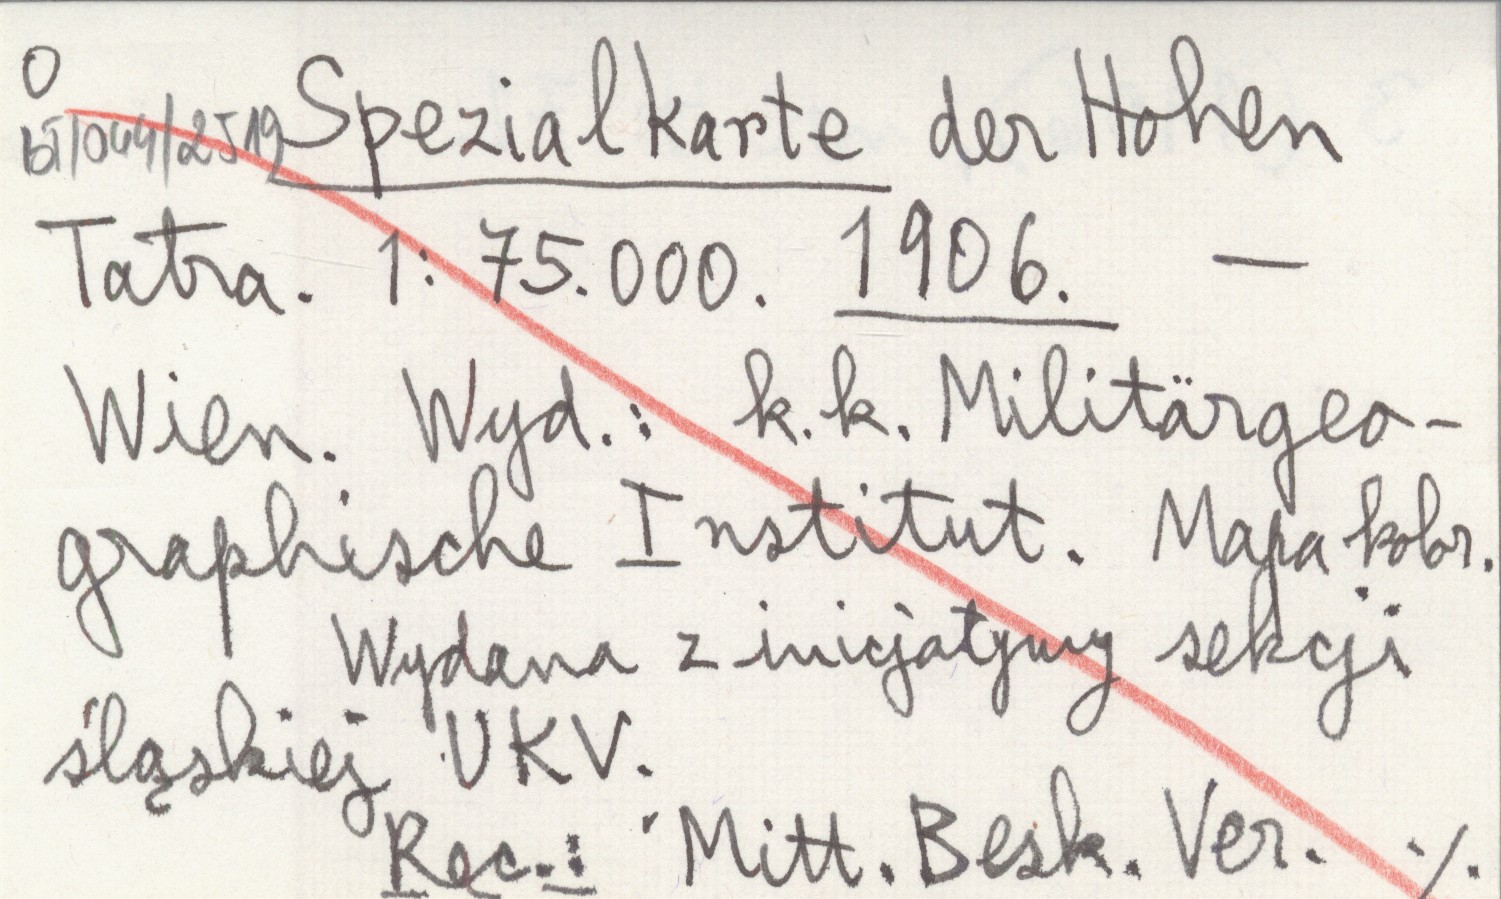 O
bi/044/2519
Spezialkarte der Hohen
Tatra. 1: 75.000. 1906. —
Wien. Wyd.: k.k. Militärgeo-
graphische Institut. Mapa kolor.
Wydana z inicjatywy sekcji
śląskiej UKV.
Rec.: Mitt. Besk. Ver. ./.